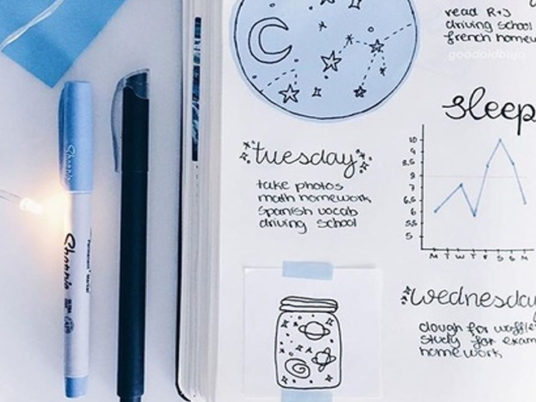 read R+J
driving school
french homew
sleep
tuesday
take photos
math homework
spanish vocab
driving school
10
9
8,5
8
7
6,5
6
5,5
5
M T W T F S S M
wednesday
dough for waffle
study for exam
homework
Sharpie
Sharpie